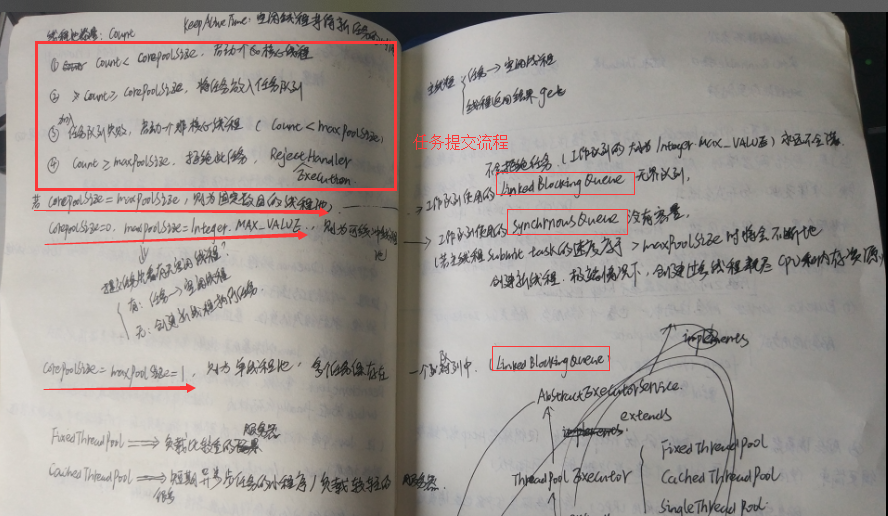 线程池容量: Count
KeepAliveTime: 空闲线程等待新任务
① Count < corePoolSize, 启动一个核心线程
② Count ≥ corePoolSize, 将任务放入任务队列
③ 任务队列失败, 启动一个非核心线程 ( Count < maxPoolSize)
④ Count ≥ maxPoolSize, 拒绝此任务, RejectHandler
Execution
若 corePoolSize = maxPoolSize, 则为固定数目的线程池
CorePoolSize=0, maxPoolSize=Integer.MAX_VALUE, 则为可缓冲线程池
提交任务时有无空闲线程?
有: 任务→空闲线程
无: 创建新线程执行任务
corePoolSize = maxPoolSize = 1, 则为单线程池, 多个任务保存在
FixedThreadPool ⟹ 负载比较重的服务器
CachedThreadPool ⟹ 短期异步任务的小程序/负载较轻的
很多
任务提交流程
主线程
任务→空闲线程
线程返回结果 get
不会拒绝任务 (工作队列的大小为 Integer.MAX_VALUE) 永远不会满
→ 工作队列使用的 LinkedBlockingQueue 无界队列,
→ 工作队列使用的 SynchronousQueue 没有容量,
(若主线程 submit task 的速度高于 > maxPoolSize 时将会不断地
创建新线程, 极端情况下, 创建过多线程耗尽 CPU 和内存资源)
implements
一个队列中. (LinkedBlockingQueue)
AbstractExecutorService
implements
extends
ThreadPoolExecutor
FixedThreadPool
CachedThreadPool
SingleThreadPool
服务器.